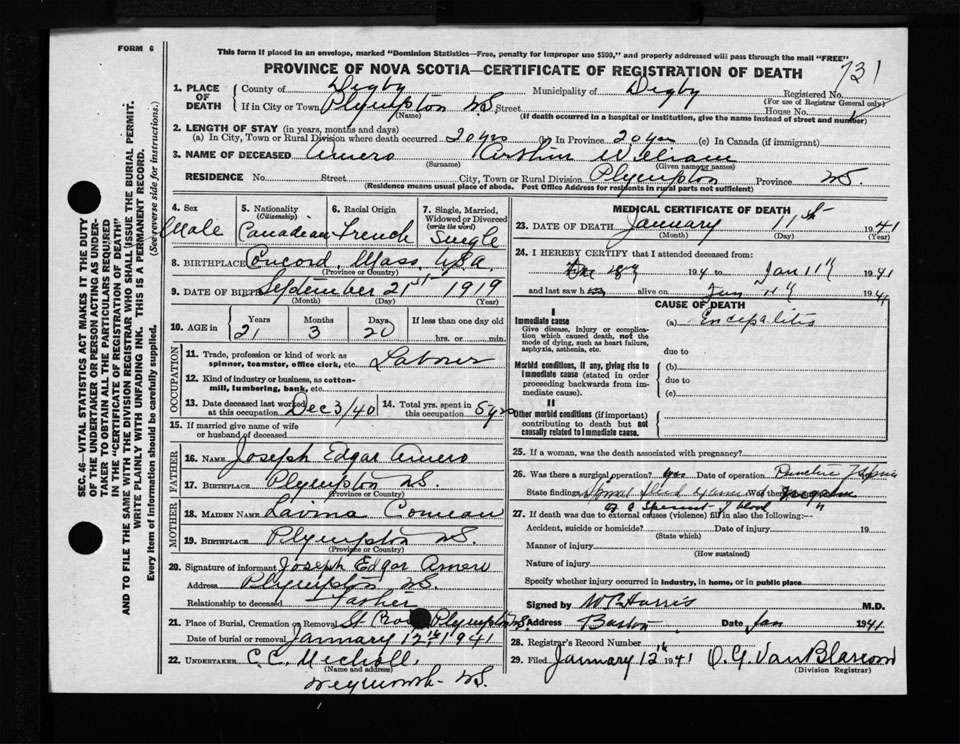 FORM 6
This form if placed in an envelope, marked "Dominion Statistics—Free, penalty for improper use $300," and properly addressed will pass through the mail "FREE"
PROVINCE OF NOVA SCOTIA—CERTIFICATE OF REGISTRATION OF DEATH
731
SEC. 46—VITAL STATISTICS ACT MAKES IT THE DUTY
OF THE UNDERTAKER OR PERSON ACTING AS UNDER-
TAKER TO OBTAIN ALL THE PARTICULARS REQUIRED
IN THE "CERTIFICATE OF REGISTRATION OF DEATH"
AND TO FILE THE SAME WITH THE DIVISION REGISTRAR WHO SHALL ISSUE THE BURIAL PERMIT.
WRITE PLAINLY WITH UNFADING INK. THIS IS A PERMANENT RECORD.
Every item of information should be carefully supplied. (See reverse side for instructions.)
1. PLACE OF DEATH
County of Digby Municipality of Digby Registered No.
(For use of Registrar General only)
If in City or Town Plympton N.S. Street House No.
(Name) (If death occurred in a hospital or institution, give the name instead of street and number)
2. LENGTH OF STAY (in years, months and days)
(a) In City, Town or Rural Division where death occurred 20 yrs (b) In Province 20 yrs (c) In Canada (if immigrant)
3. NAME OF DECEASED Amero Arthur William
(Surname) (Given name or names)
RESIDENCE No. Street City, Town or Rural Division Plympton Province N.S.
(Residence means usual place of abode. Post Office Address for residents in rural parts not sufficient)
4. Sex Male
5. Nationality (Citizenship) Canadian
6. Racial Origin French
7. Single, Married, Widowed or Divorced (write the word) Single
8. BIRTHPLACE Concord, Mass, U.S.A.
(Province or Country)
9. DATE OF BIRTH September 21st 1919
(Month) (Day) (Year)
10. AGE in Years 21 Months 3 Days 20 If less than one day old hrs. or min.
OCCUPATION
11. Trade, profession or kind of work as spinner, teamster, office clerk, etc. Laborer
12. Kind of industry or business, as cotton-mill, lumbering, bank, etc.
13. Date deceased last worked at this occupation Dec 3/40 14. Total yrs. spent in this occupation 5 yrs
15. If married give name of wife or husband of deceased
FATHER
16. NAME Joseph Edgar Amero
17. BIRTHPLACE Plympton N.S.
(Province or Country)
MOTHER
18. MAIDEN NAME Lavina Comeau
19. BIRTHPLACE Plympton N.S.
(Province or Country)
20. Signature of informant Joseph Edgar Amero
Address Plympton N.S.
Relationship to deceased Father
21. Place of Burial, Cremation or Removal St Plympton N.S.
Date of burial or removal January 12th 1941
22. UNDERTAKER C. C.
(Name and address)
Weymouth N.S.
MEDICAL CERTIFICATE OF DEATH
23. DATE OF DEATH January 11th 1941
(Month) (Day) (Year)
24. I HEREBY CERTIFY that I attended deceased from:
194 to Jan 11th 1941
and last saw h alive on 1941
CAUSE OF DEATH
I
Immediate cause
Give disease, injury or complication which caused death, not the mode of dying, such as heart failure, asphyxia, asthenia, etc.
(a) Encepalitis
due to
Morbid conditions, if any, giving rise to immediate cause (stated in order proceeding backwards from immediate cause)
(b)
due to
(c)
II
Other morbid conditions (if important) contributing to death but not causally related to immediate cause.
25. If a woman, was the death associated with pregnancy?
26. Was there a surgical operation? yes Date of operation
State findings
27. If death was due to external causes (violence) fill in also the following:—
Accident, suicide or homicide? Date of injury 19
(State which)
Manner of injury
(How sustained)
Nature of injury
Specify whether injury occurred in industry, in home, or in public place
Signed by W. Harris M.D.
Address Date Jan 1941
28. Registrar's Record Number
29. Filed January 12th 1941 O. G. Van Blarcom
(Division Registrar)